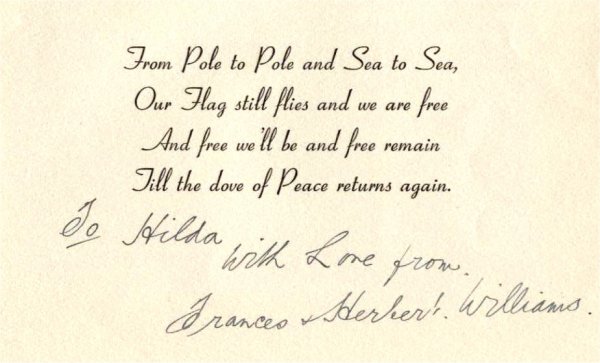 From Pole to Pole and Sea to Sea,
Our Flag still flies and we are free
And free we'll be and free remain
Till the dove of Peace returns again.
To Hilda
With Love from.
Frances & Herbert. Williams.